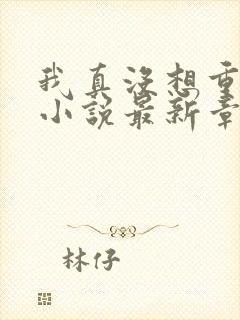 我真没想重
小说最新章
林仔